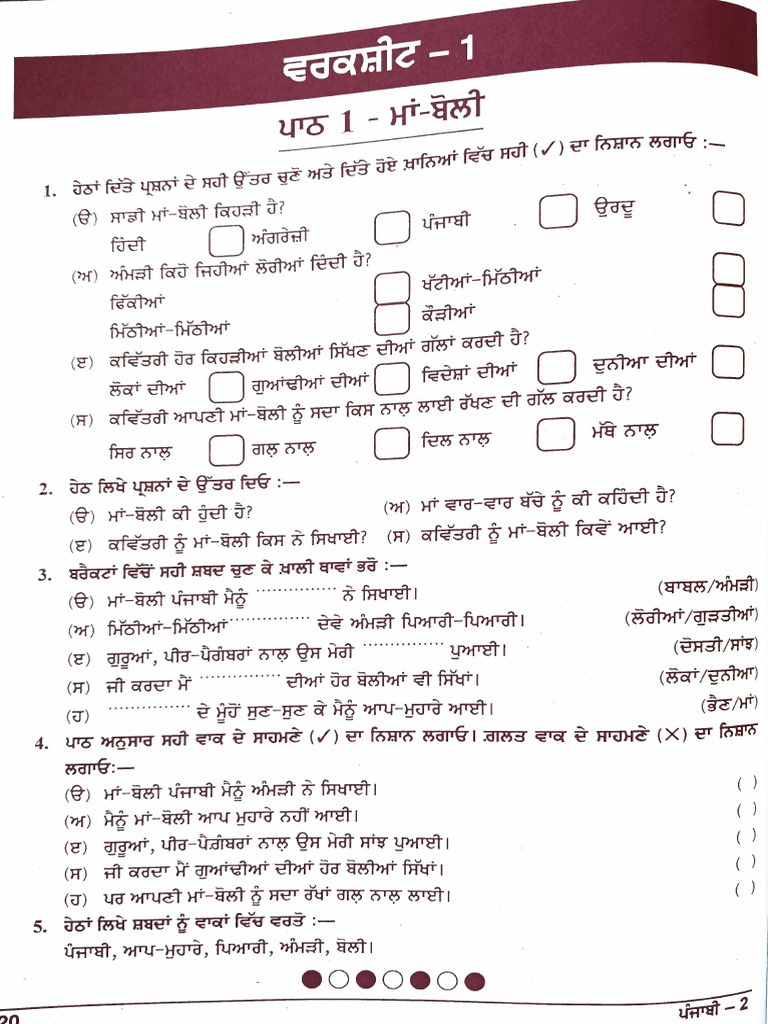 ਵਰਕਸ਼ੀਟ – 1
ਪਾਠ 1 - ਮਾਂ-ਬੋਲੀ
1. ਹੇਠਾਂ ਦਿੱਤੇ ਪ੍ਰਸ਼ਨਾਂ ਦੇ ਸਹੀ ਉੱਤਰ ਚੁਣੋ ਅਤੇ ਦਿੱਤੇ ਹੋਏ ਖ਼ਾਨਿਆਂ ਵਿੱਚ ਸਹੀ (✓) ਦਾ ਨਿਸ਼ਾਨ ਲਗਾਓ :—
(ੳ) ਸਾਡੀ ਮਾਂ-ਬੋਲੀ ਕਿਹੜੀ ਹੈ?
ਹਿੰਦੀ ਅੰਗਰੇਜ਼ੀ ਪੰਜਾਬੀ ਉਰਦੂ
(ਅ) ਅੰਮੜੀ ਕਿਹੋ ਜਿਹੀਆਂ ਲੋਰੀਆਂ ਦਿੰਦੀ ਹੈ?
ਫਿੱਕੀਆਂ ਖੱਟੀਆਂ-ਮਿੱਠੀਆਂ
ਮਿੱਠੀਆਂ-ਮਿੱਠੀਆਂ ਕੌੜੀਆਂ
(ੲ) ਕਵਿੱਤਰੀ ਹੋਰ ਕਿਹੜੀਆਂ ਬੋਲੀਆਂ ਸਿੱਖਣ ਦੀਆਂ ਗੱਲਾਂ ਕਰਦੀ ਹੈ?
ਲੋਕਾਂ ਦੀਆਂ ਗੁਆਂਢੀਆਂ ਦੀਆਂ ਵਿਦੇਸ਼ਾਂ ਦੀਆਂ ਦੁਨੀਆ ਦੀਆਂ
(ਸ) ਕਵਿੱਤਰੀ ਆਪਣੀ ਮਾਂ-ਬੋਲੀ ਨੂੰ ਸਦਾ ਕਿਸ ਨਾਲ਼ ਲਾਈ ਰੱਖਣ ਦੀ ਗੱਲ ਕਰਦੀ ਹੈ?
ਸਿਰ ਨਾਲ਼ ਗਲ਼ ਨਾਲ਼ ਦਿਲ ਨਾਲ਼ ਮੱਥੇ ਨਾਲ਼
2. ਹੇਠ ਲਿਖੇ ਪ੍ਰਸ਼ਨਾਂ ਦੇ ਉੱਤਰ ਦਿਓ :—
(ੳ) ਮਾਂ-ਬੋਲੀ ਕੀ ਹੁੰਦੀ ਹੈ? (ਅ) ਮਾਂ ਵਾਰ-ਵਾਰ ਬੱਚੇ ਨੂੰ ਕੀ ਕਹਿੰਦੀ ਹੈ?
(ੲ) ਕਵਿੱਤਰੀ ਨੂੰ ਮਾਂ-ਬੋਲੀ ਕਿਸ ਨੇ ਸਿਖਾਈ? (ਸ) ਕਵਿੱਤਰੀ ਨੂੰ ਮਾਂ-ਬੋਲੀ ਕਿਵੇਂ ਆਈ?
3. ਬਰੈਕਟਾਂ ਵਿੱਚੋਂ ਸਹੀ ਸ਼ਬਦ ਚੁਣ ਕੇ ਖ਼ਾਲੀ ਥਾਵਾਂ ਭਰੋ :—
(ੳ) ਮਾਂ-ਬੋਲੀ ਪੰਜਾਬੀ ਮੈਨੂੰ ............... ਨੇ ਸਿਖਾਈ। (ਬਾਬਲ/ਅੰਮੜੀ)
(ਅ) ਮਿੱਠੀਆਂ-ਮਿੱਠੀਆਂ ............... ਦੇਵੇ ਅੰਮੜੀ ਪਿਆਰੀ-ਪਿਆਰੀ। (ਲੋਰੀਆਂ/ਗੁੜਤੀਆਂ)
(ੲ) ਗੁਰੂਆਂ, ਪੀਰ-ਪੈਗੰਬਰਾਂ ਨਾਲ਼ ਉਸ ਮੇਰੀ ............... ਪੁਆਈ। (ਦੋਸਤੀ/ਸਾਂਝ)
(ਸ) ਜੀ ਕਰਦਾ ਮੈਂ ............... ਦੀਆਂ ਹੋਰ ਬੋਲੀਆਂ ਵੀ ਸਿੱਖਾਂ। (ਲੋਕਾਂ/ਦੁਨੀਆ)
(ਹ) ............... ਦੇ ਮੂੰਹੋਂ ਸੁਣ-ਸੁਣ ਕੇ ਮੈਨੂੰ ਆਪ-ਮੁਹਾਰੇ ਆਈ। (ਭੈਣ/ਮਾਂ)
4. ਪਾਠ ਅਨੁਸਾਰ ਸਹੀ ਵਾਕ ਦੇ ਸਾਹਮਣੇ (✓) ਦਾ ਨਿਸ਼ਾਨ ਲਗਾਓ। ਗ਼ਲਤ ਵਾਕ ਦੇ ਸਾਹਮਣੇ (✕) ਦਾ ਨਿਸ਼ਾਨ
ਲਗਾਓ:—
(ੳ) ਮਾਂ-ਬੋਲੀ ਪੰਜਾਬੀ ਮੈਨੂੰ ਅੰਮੜੀ ਨੇ ਸਿਖਾਈ। ( )
(ਅ) ਮੈਨੂੰ ਮਾਂ-ਬੋਲੀ ਆਪ ਮੁਹਾਰੇ ਨਹੀਂ ਆਈ। ( )
(ੲ) ਗੁਰੂਆਂ, ਪੀਰ-ਪੈਗ਼ੰਬਰਾਂ ਨਾਲ਼ ਉਸ ਮੇਰੀ ਸਾਂਝ ਪੁਆਈ। ( )
(ਸ) ਜੀ ਕਰਦਾ ਮੈਂ ਗੁਆਂਢੀਆਂ ਦੀਆਂ ਹੋਰ ਬੋਲੀਆਂ ਸਿੱਖਾਂ। ( )
(ਹ) ਪਰ ਆਪਣੀ ਮਾਂ-ਬੋਲੀ ਨੂੰ ਸਦਾ ਰੱਖਾਂ ਗਲ਼ ਨਾਲ਼ ਲਾਈ। ( )
5. ਹੇਠਾਂ ਲਿਖੇ ਸ਼ਬਦਾਂ ਨੂੰ ਵਾਕਾਂ ਵਿੱਚ ਵਰਤੋ :—
ਪੰਜਾਬੀ, ਆਪ-ਮੁਹਾਰੇ, ਪਿਆਰੀ, ਅੰਮੜੀ, ਬੋਲੀ।
20 ਪੰਜਾਬੀ – 2